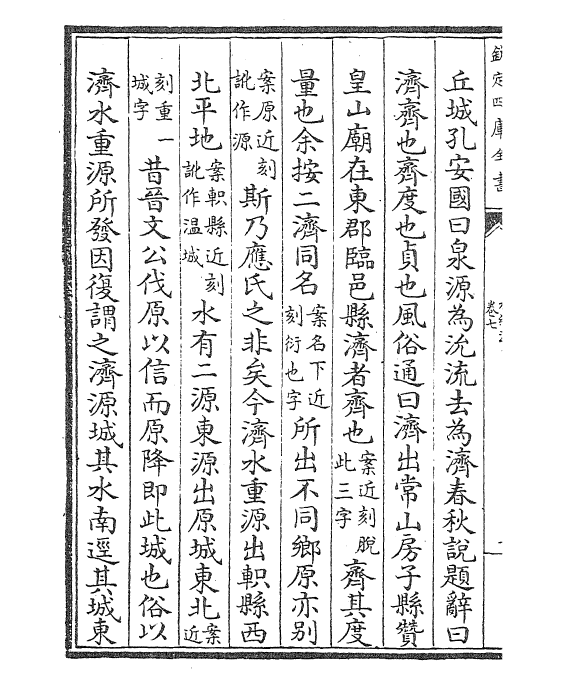 欽定四庫全書
卷七
丘城孔安國曰泉源為沇流去為濟春秋說題辭曰
濟齊也齊度也貞也風俗通曰濟出常山房子縣贊
皇山廟在東郡臨邑縣濟者齊也案近刻脫此三字齊其度
量也余按二濟同名案名下近刻衍也字所出不同鄉原亦别
案原近刻訛作源斯乃應氏之非矣今濟水重源出軹縣西
北平地案軹縣近刻訛作温城水有二源東源出原城東北案近
刻重一城字昔晉文公伐原以信而原降即此城也俗以
濟水重源所發因復謂之濟源城其水南逕其城東